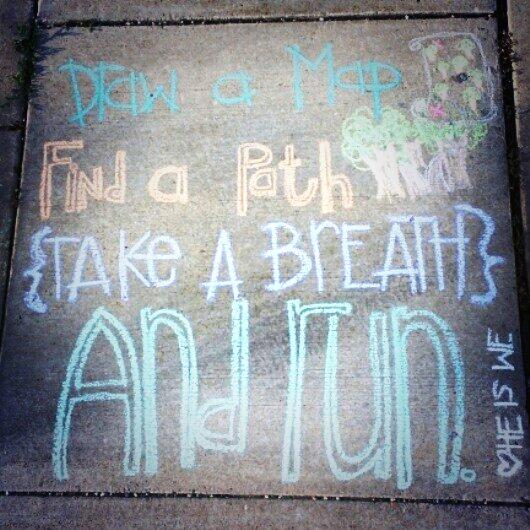 Draw a Map
Find a Path
{TAKe A BreATH}
And run.
♡HE IS WE